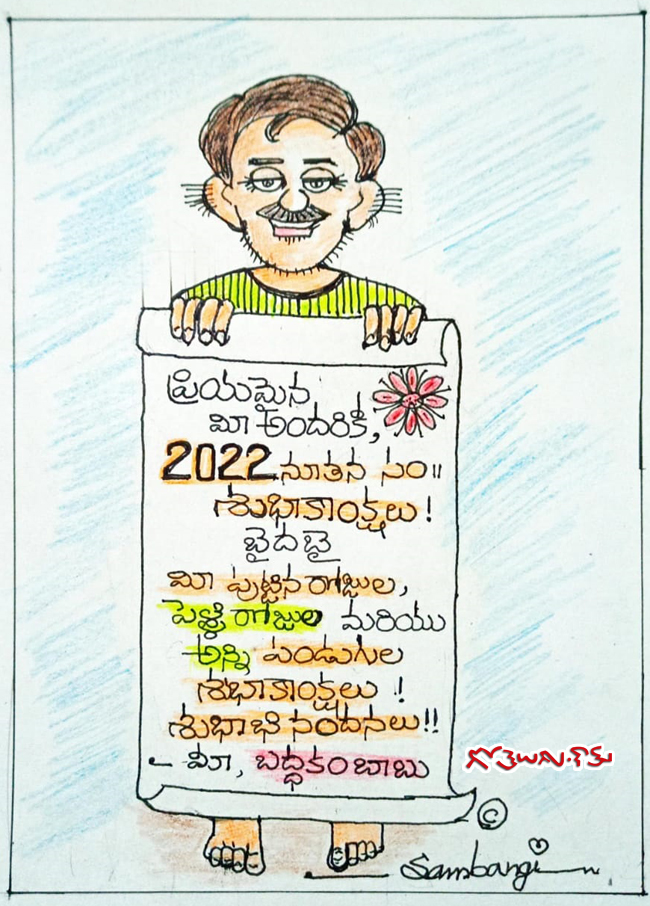 ప్రియమైన
మీ అందరికీ,
2022 నూతన సం॥
శుభాకాంక్షలు !
బైదబై
మీ పుట్టిన రోజుల,
పెళ్ళి రోజుల మరియు
అన్ని పండుగల
శుభాకాంక్షలు !
శుభాభినందనలు!!
- మీ, బద్ధకం బాబు
గోతెలుగు.కామ్
©
Sambangi